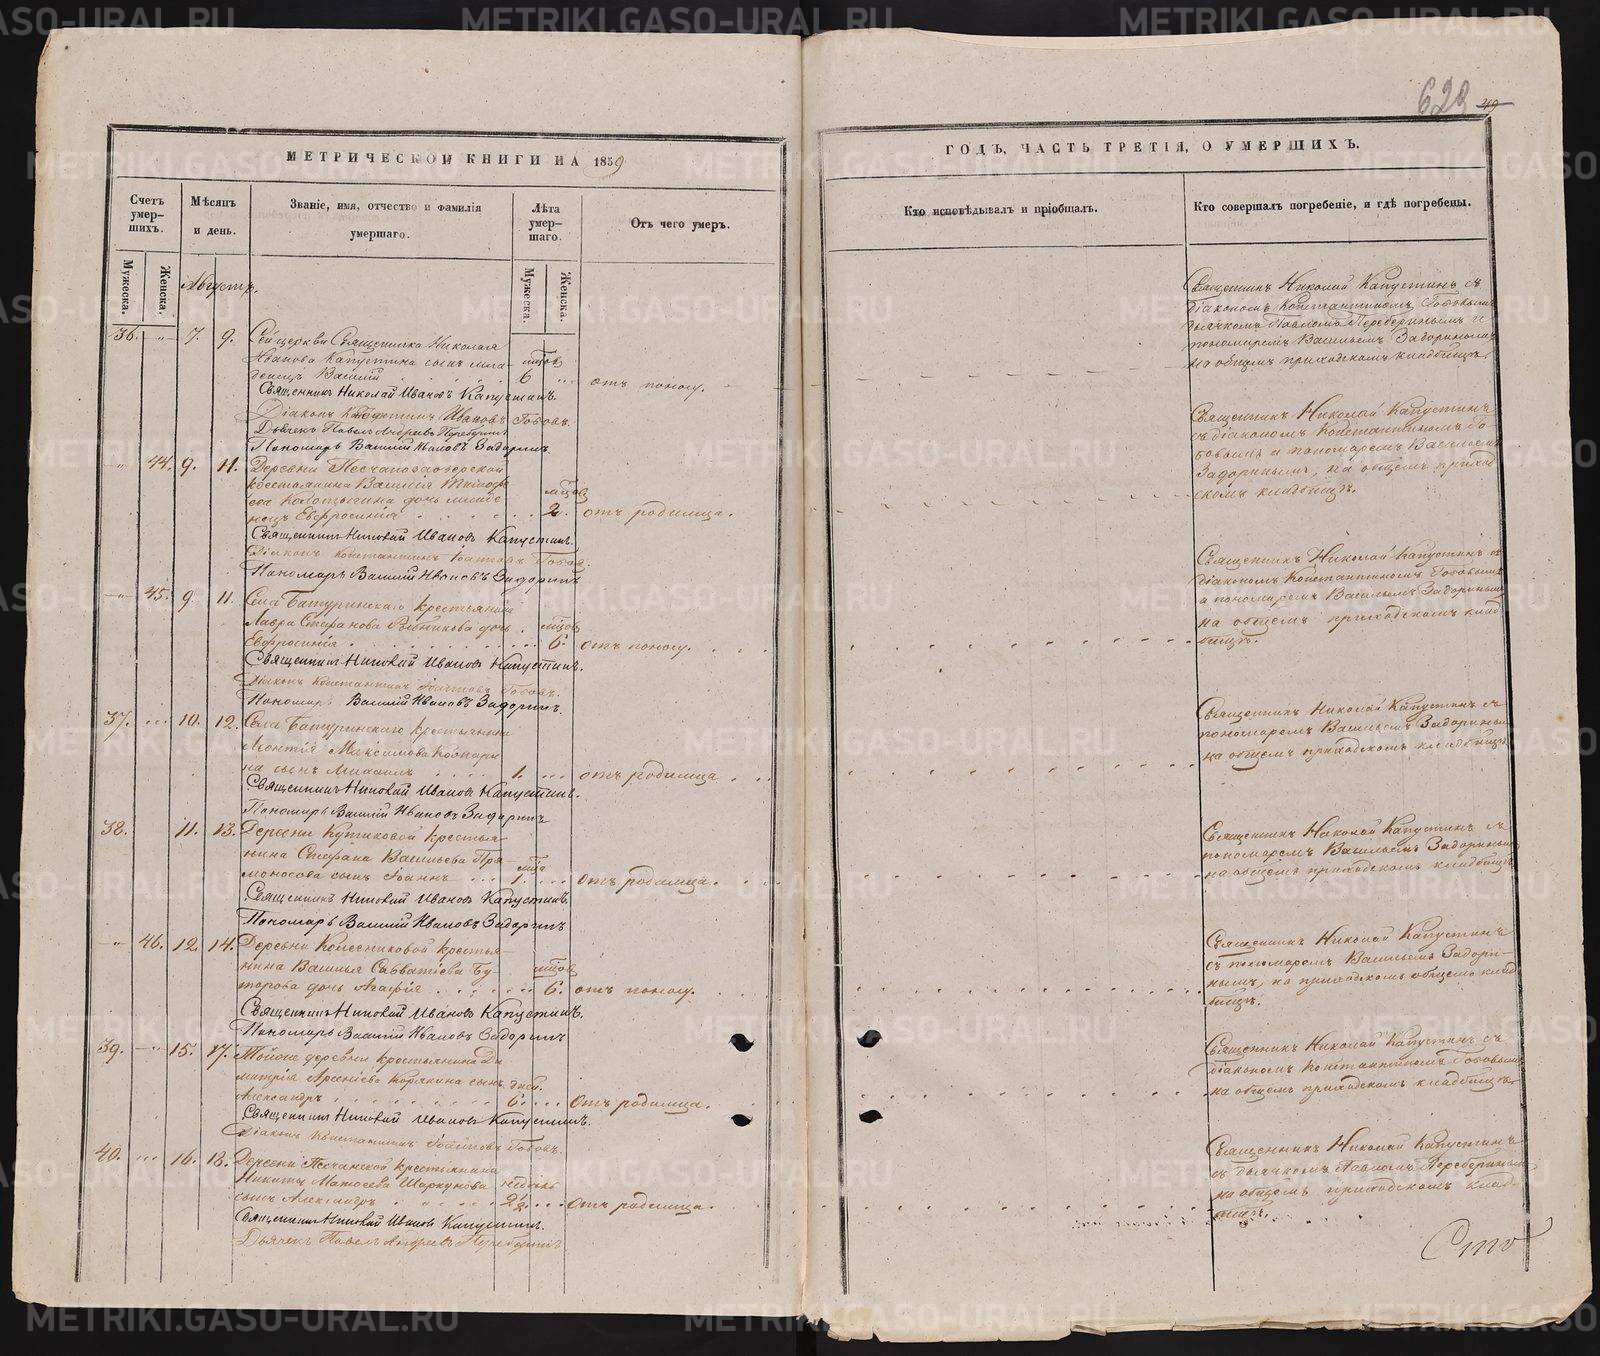 628 49
МЕТРИЧЕСКОЙ КНИГИ НА 1859
Счетъ умер- шихъ.
Мѣсяцъ и день.
Званіе, имя, отчество и фамилія умершаго.
Лѣта умер- шаго.
Отъ чего умеръ.
Мужеска. Женска.
Мужеска. Женска.
Августъ.
36. 7. 9. Сей церкви Священника Николая
Иванова Капустина сынъ мла-
денецъ Василій 6 отъ поносу.
Священникъ Николай Ивановъ Капустинъ.
Діаконъ Константинъ Ивановъ Гобовъ.
Дьячекъ Павелъ Андреевъ Переберинъ
Пономарь Василій Ивановъ Задоринъ.
44. 9. 11. Деревни Песчанозаозерской
крестьянина Василія
дочь младе-
нецъ Евфросинія 2. отъ родимца.
Священникъ Николай Ивановъ Капустинъ.
Діаконъ Константинъ Гобовъ.
Пономарь Василій Ивановъ Задоринъ
45. 9. 11. Села Батуринскаго крестьянина
Лавра Стефанова дочь
Евфросинія 6. отъ поносу.
Священникъ Николай Ивановъ Капустинъ.
Діаконъ Константинъ Гобовъ.
Пономарь Василій Ивановъ Задоринъ.
37. 10. 12. Села Батуринскаго крестьянина
Леонтія Максимова
на сынъ Михаилъ 1. отъ родимца
Священникъ Николай Ивановъ Капустинъ.
Пономарь Василій Ивановъ Задоринъ
38. 11. 13. Деревни Кутиковой крестья-
нина Стефана Васильева Пря-
моносова сынъ Іоаннъ 1. отъ родимца.
Священникъ Николай Ивановъ Капустинъ.
Пономарь Василій Ивановъ Задоринъ
46. 12. 14. Деревни Колесниковой крестья-
нина Василья Савватіева Бу-
торова дочь Агафія 6. отъ поносу.
Священникъ Николай Ивановъ Капустинъ.
Пономарь Василій Ивановъ Задоринъ
39. 15. 17. Тойже деревни крестьянина Ди
митрія Арсеніева Корякина сынъ дней
Александръ 6. отъ родимца.
Священникъ Николай Ивановъ Капустинъ.
Діаконъ Константинъ Гобовъ.
40. 16. 18. Деревни Песчанской крестьянина
Никиты Матѳеева Шаркунова недель
сынъ Александръ 2½ отъ родимца.
Священникъ Николай Ивановъ Капустинъ.
Дьячекъ Павелъ Андреевъ Переберинъ
ГОДЪ, ЧАСТЬ ТРЕТІЯ, О УМЕРШИХЪ.
Кто исповѣдывалъ и пріобщалъ.
Кто совершалъ погребеніе, и гдѣ погребены.
Священникъ Николай Капустинъ съ
діакономъ Константиномъ Гобовымъ
дьячкомъ Павломъ Переберинымъ и
пономаремъ Васильемъ Задоринымъ
на общемъ приходскомъ кладбищѣ.
Священникъ Николай Капустинъ
съ діакономъ Константиномъ Го-
бовымъ и пономаремъ Васильемъ
Задоринымъ, на общемъ приход
скомъ кладбищѣ.
Священникъ Николай Капустинъ съ
діакономъ Константиномъ Гобовымъ
и пономаремъ Васильемъ Задоринымъ
на общемъ приходскомъ клад-
бищѣ.
Священникъ Николай Капустинъ съ
пономаремъ Васильемъ Задоринымъ
на общемъ приходскомъ кладбищѣ
Священникъ Николай Капустинъ съ
пономаремъ Васильемъ Задоринымъ
на общемъ приходскомъ кладбищѣ
Священникъ Николай Капустинъ
съ пономаремъ Васильемъ Задори-
нымъ, на приходскомъ общемъ клад
бищѣ.
Священникъ Николай Капустинъ съ
діакономъ Константиномъ Гобовымъ
на общемъ приходскомъ кладбищѣ
Священникъ Николай Капустинъ
съ дьячкомъ Павломъ Переберинымъ
на общемъ приходскомъ клад-
бищѣ.
METRIKI.GASO-URAL.RU